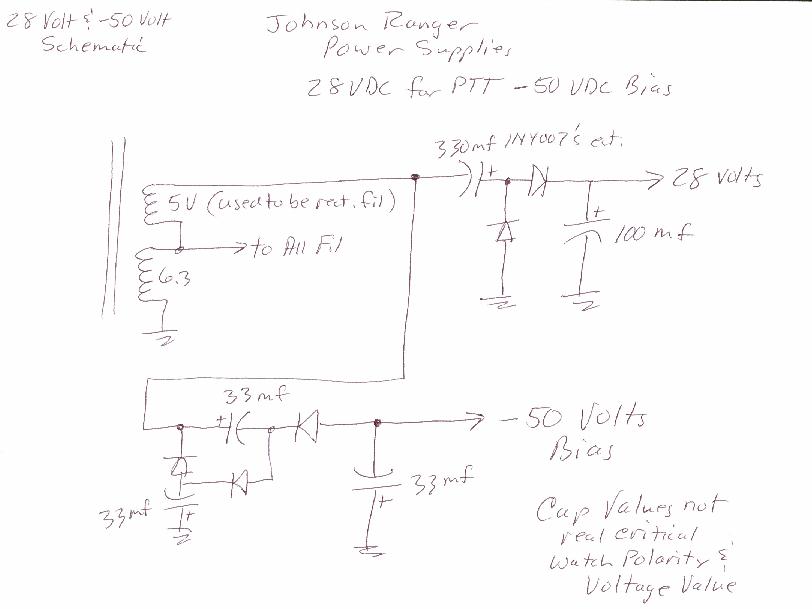 28 Volt & -50 Volt
Schematic
Johnson Ranger
Power Supplies
28 VDC for PTT -50 VDC Bias
330mf 1N4007's ect.
+
28 Volts
5V (used to be rect. fil)
+
100 mf
to All Fil
6.3
33mf
+
-50 Volts
Bias
33mf
+
33mf
+
Cap Values not
real critical
Watch Polarity &
Voltage Value